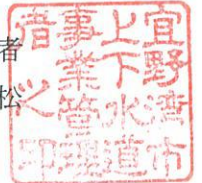 者
松
宜野湾市
上下水道
事業管理
者之印